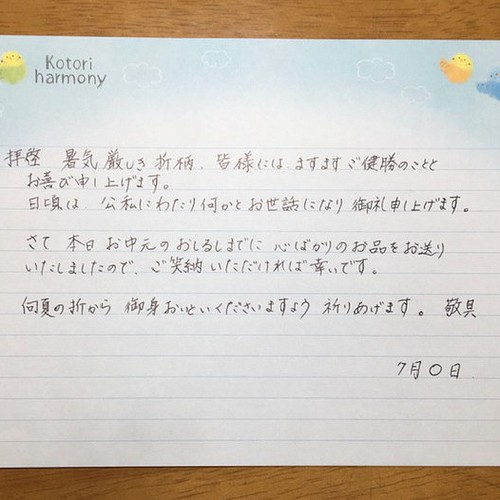 Kotori
harmony
拝啓 暑気厳しき折柄、皆様には、ますますご健勝のことと
お喜び申し上げます。
日頃は、公私にわたり何かとお世話になり御礼申し上げます。
さて 本日 お中元のおしるしまでに 心ばかりのお品をお送り
いたしましたので、ご笑納いただければ幸いです。
向夏の折から 御身おいといくださいますよう 祈りあげます。 敬具
7月〇日